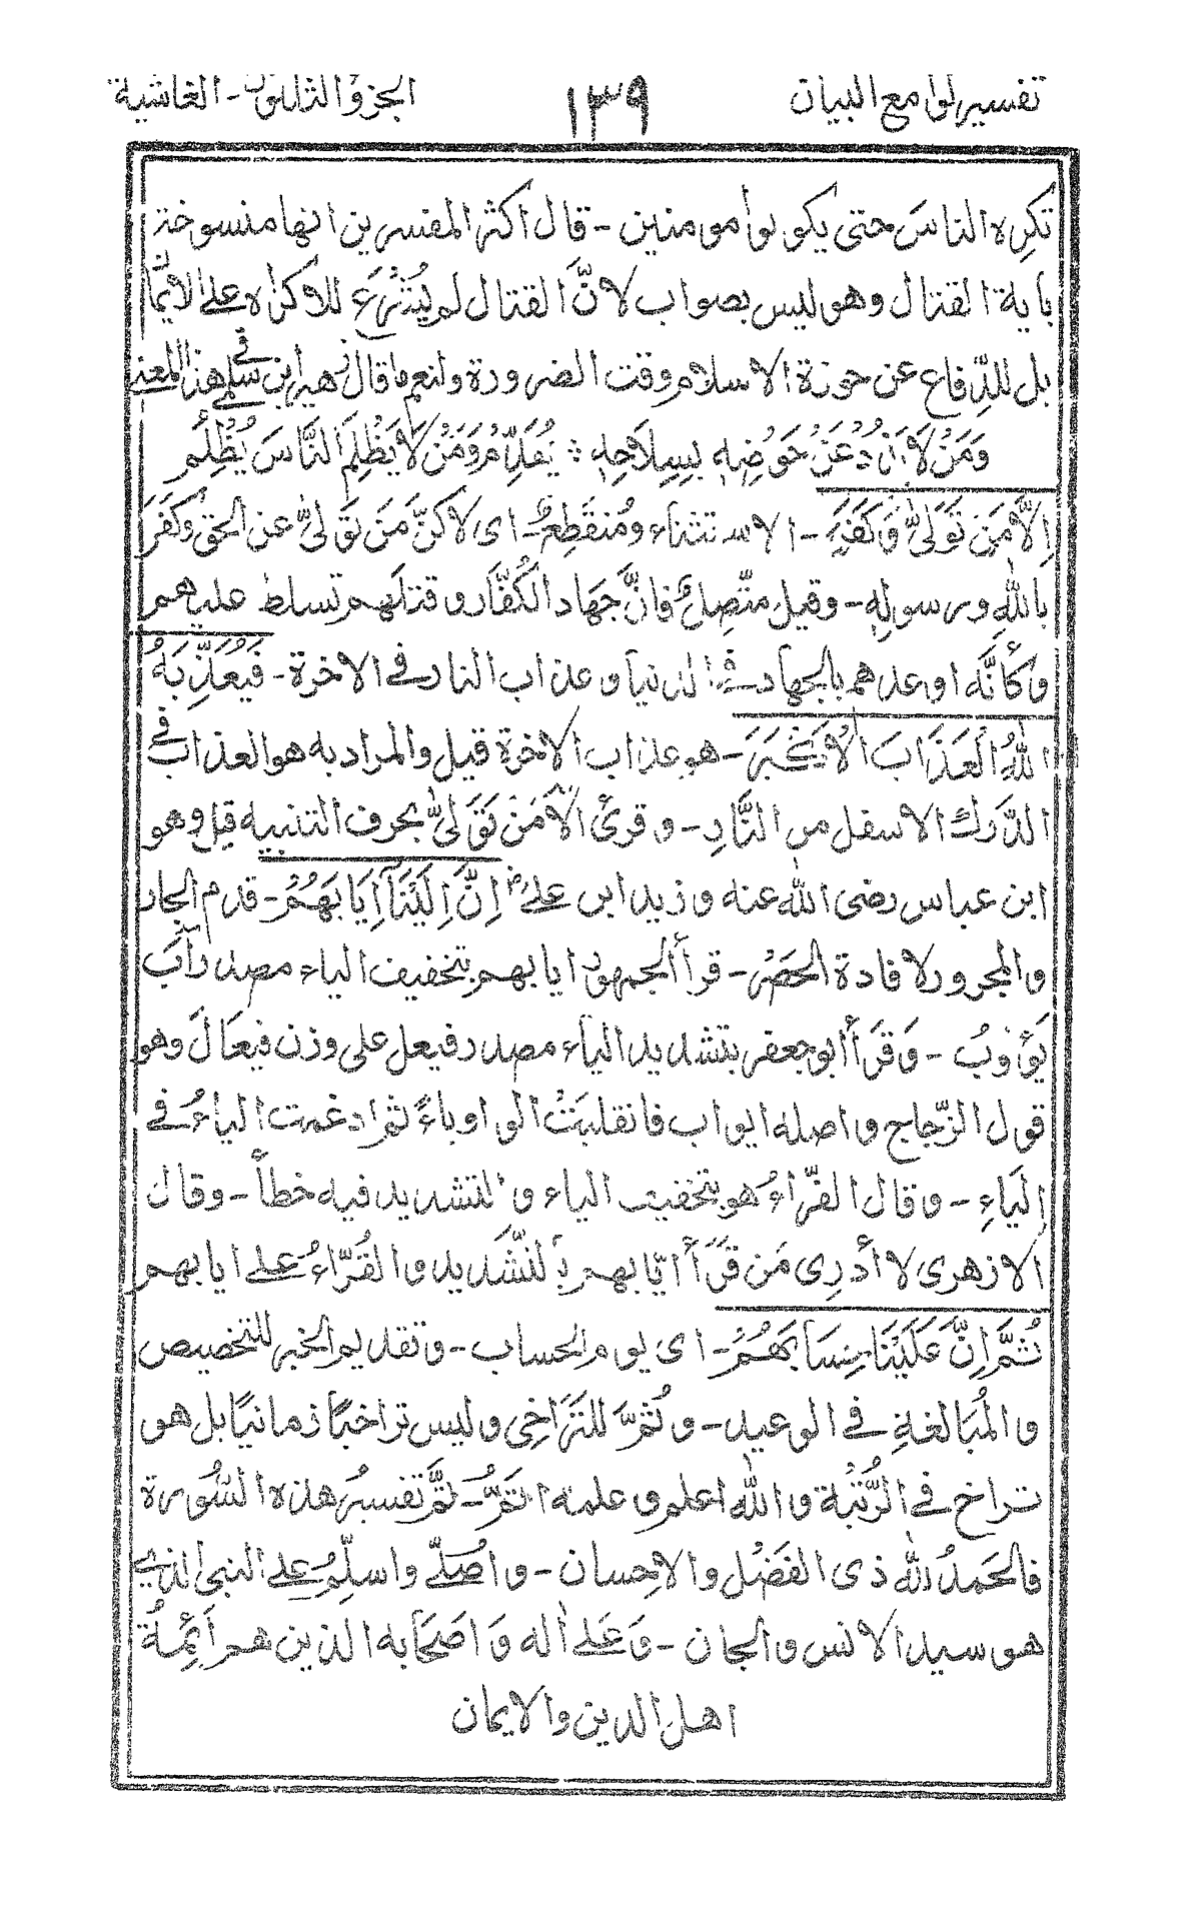 تفسير لوامع البيان ١٣٩ الجزؤ الثلثون - الغاشية
تكرِه الناسَ حتى يكونوا مومنين - قال اكثر المفسرين انها منسوخة
باية القتال وهو ليس بصواب لانَّ القتال لم يُشْرَع للاكراه على الايمان
بل للدِّفاع عن حوزة الاسلام وقت الضرورة ولنعم ما قال زهير ابن سلمى فى هذا المعنى
وَمَنْ لَا يَذُدْ عَنْ حَوْضِهٖ بِسِلَاحِهٖ ؞ يُهَدَّمْ وَمَنْ لَا يَظْلِمِ النَّاسَ يُظْلَمُ
اِلَّا مَنْ تَوَلّٰى وَكَفَرَ - الاستثناء ومُنقَطِعٌ - اى لاكنَّ مَن تَوَلّٰى عن الحق وكَفَرَ
باللهِ ورسولِهٖ - وقيل متَّصِلٌ فانَّ جهاد الكُفَّار وقتلَهم تسلط عليهم
وكأنَّه اوعدهم بالجهاد فى الدنيا وعذاب النار فى الاخرة - فَيُعَذِّبُهُ
اللهُ الْعَذَابَ الْاَكْبَرَ - هو عذاب الاخرة قيل والمراد به هو العذاب فى
الدَّرك الاسفل من النَّارِ - وقرئ اَلَا مَنْ تَوَلّٰى بحرف التنبيه قيل وهو
ابن عباس رضى الله عنه وزيد ابن علىؓ اِنَّ اِلَيْنَا اِيَابَهُمْ - قدم الجار
والمجرور لافادة الحَصْر - قرأ الجمهور ايابهم بتخفيف الياء مصدر آبَ
يَؤُوبُ - وَقَرَأ ابو جعفر بتشديد الياء مصدر فيعل على وزن فيعَالَ وهو
قول الزَّجاج واصله ايواب فانقلبَتْ الواو ياءً ثم ادغمت الياءُ فى
اليَاءِ - وقال الفَرَّاءُ هو بتخفيف الياء والتشديد فيه خطأ - وقال
الازهرى لا أدرِى مَن قَرَأ ايّابهم بالتَّشديد والقُرَّاءُ على ايابهم
ثُمَّ اِنَّ عَلَيْنَا حِسَابَهُمْ - اى يوم الحساب - وتقديم الخبر للتخصيص
والمُبَالغةِ فى الوعيد - وثُمَّ للتَرَاخِى وليس تراخيًا زمانيًا بل هو
تراخ فى الرُّتبَة والله اعلم وعلمه اتَمُّ - تَمَّ تفسيرُ هذه السُّورة
فالحَمدُ لله ذى الفَضْل والاحسان - واصَلّى واسلِّمُ على النبى الذى
هو سيد الانس والجان - وَعَلى اٰله وَاصحَابه الذين هم اَئِمةُ
اهل الدين والايمان